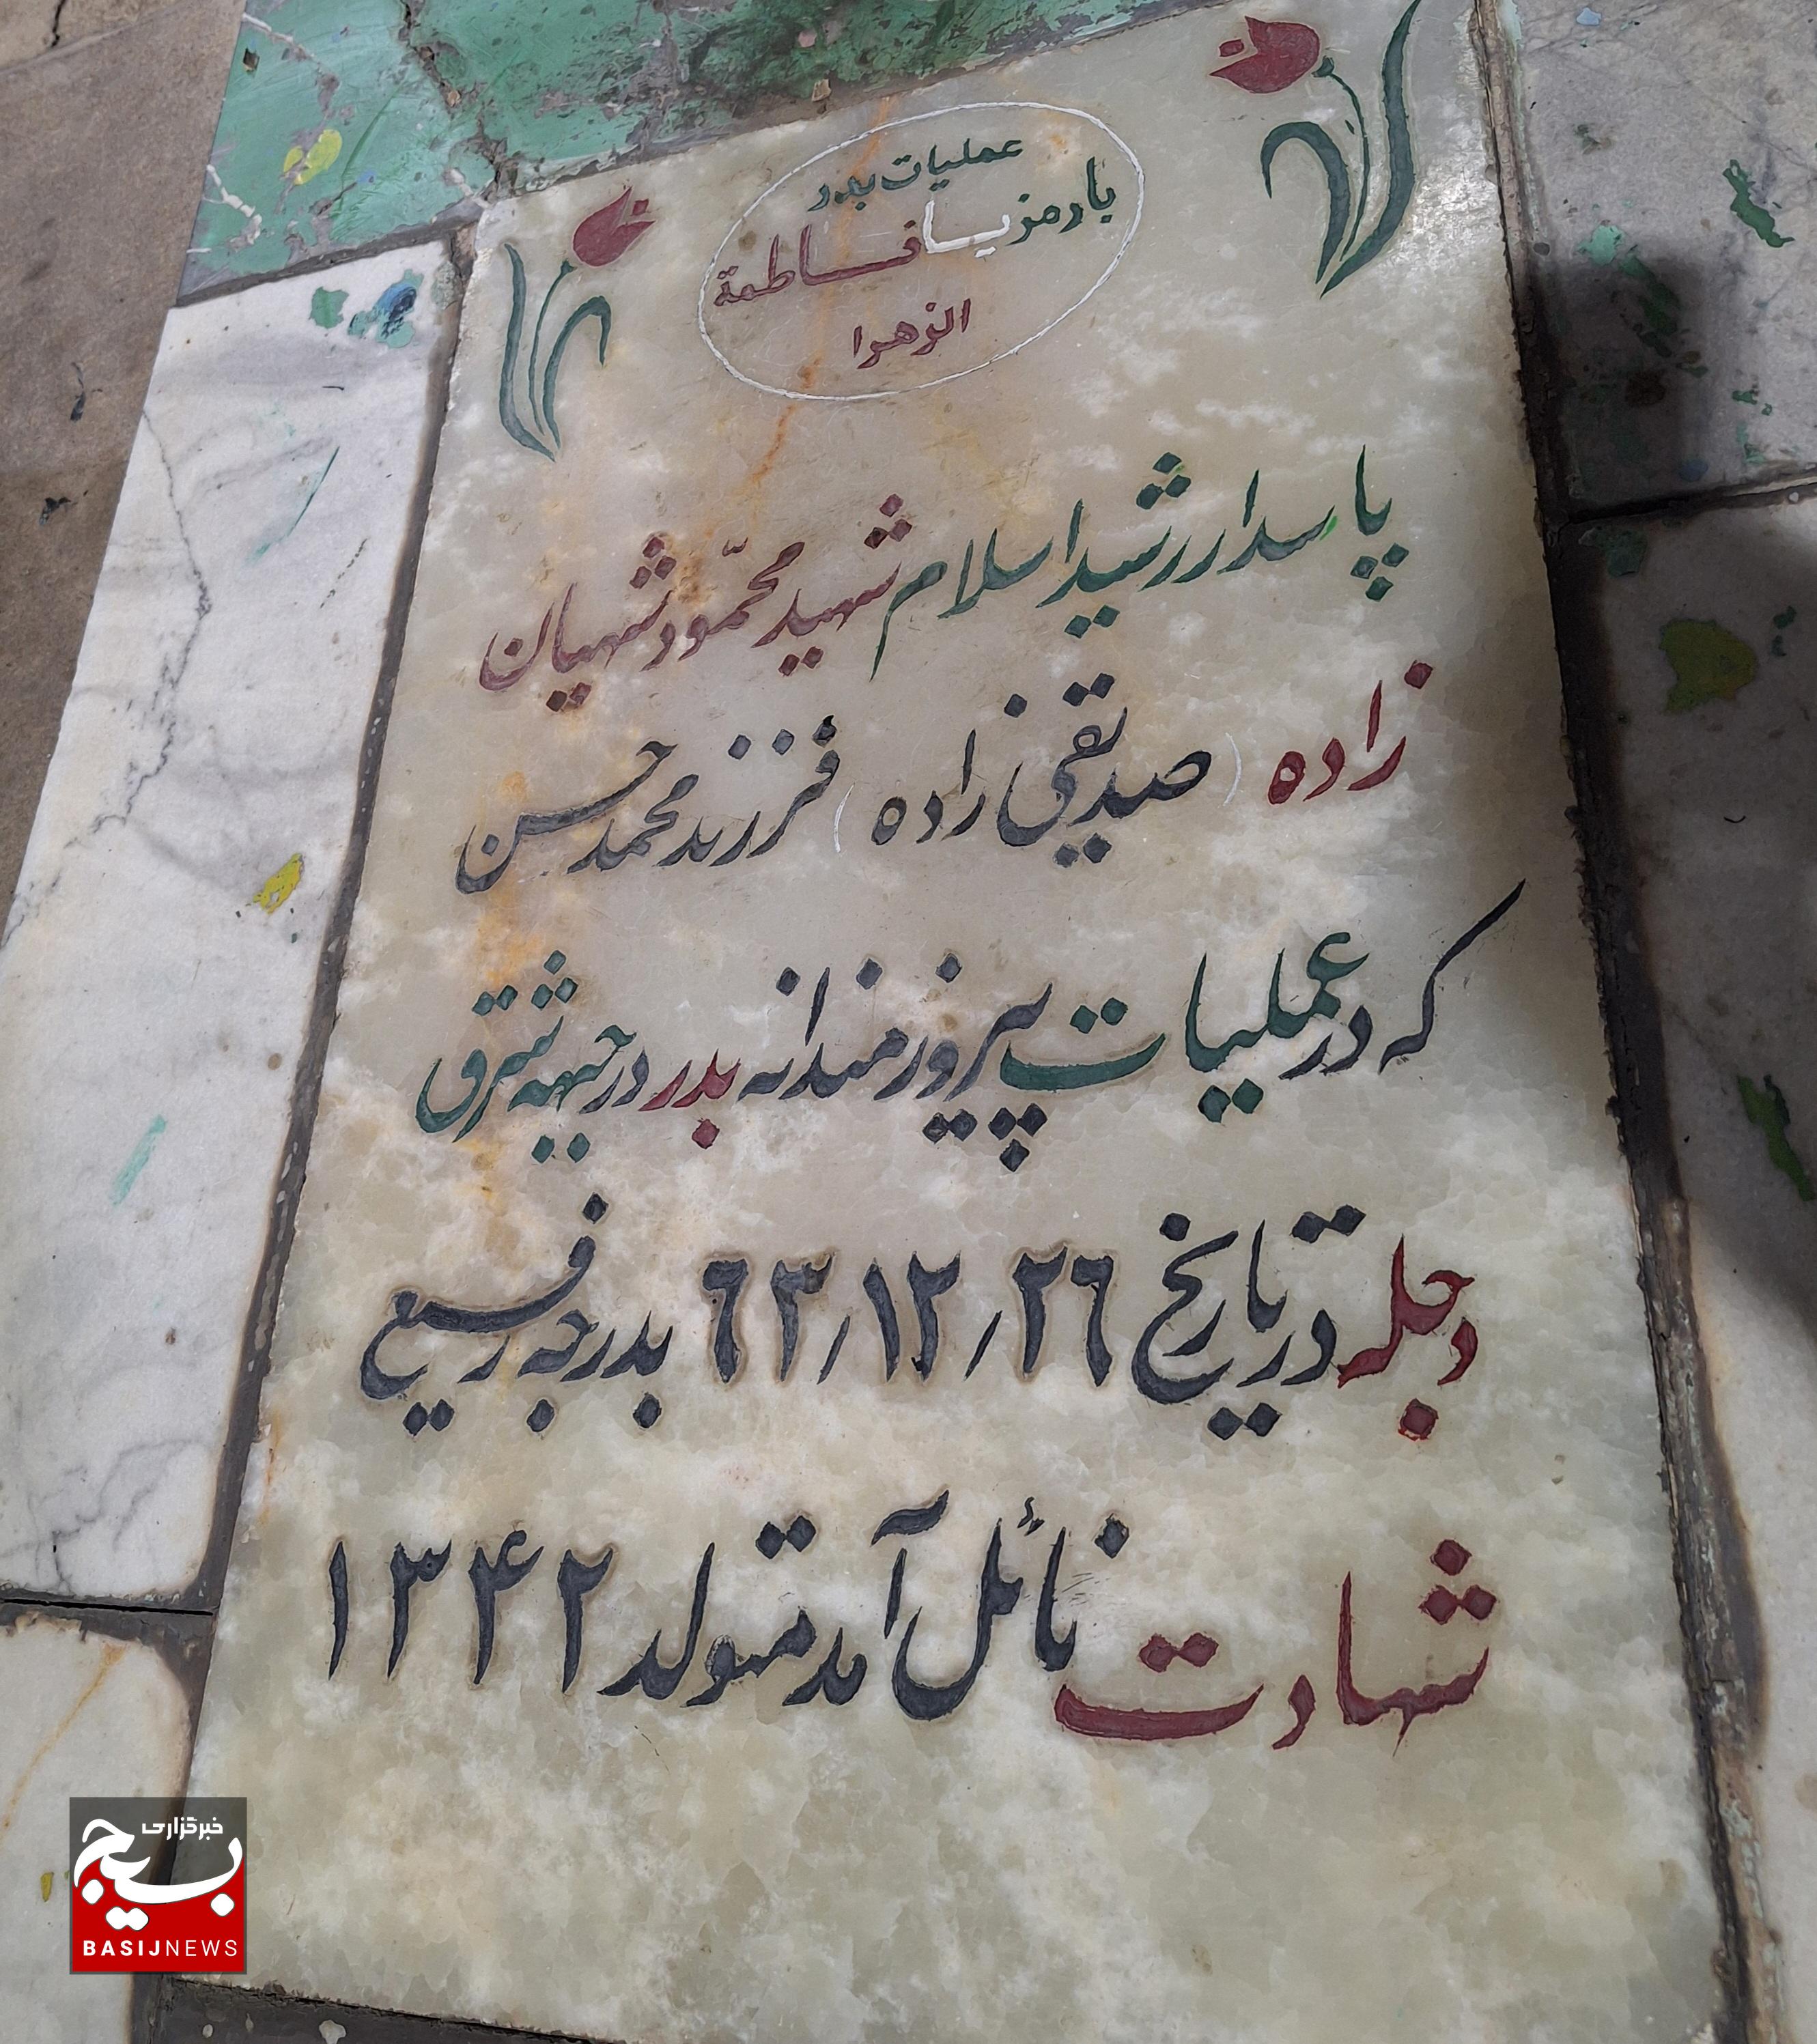 عملیات بدر
با رمز یا فاطمة
الزهرا
پاسدار رشید اسلام شهید محمّود شهیان
زاده (صدیقی زاده) فرزند محمد حسن
که در عملیات پیروزمندانه بدر در جبهه شرق
دجله در تاریخ ٢٦/١٢/٦٣ بدرجه رفیع
شهادت نائل آمد متولد ۱۳۴۲
خبرگزاری
بسیج
BASIJNEWS